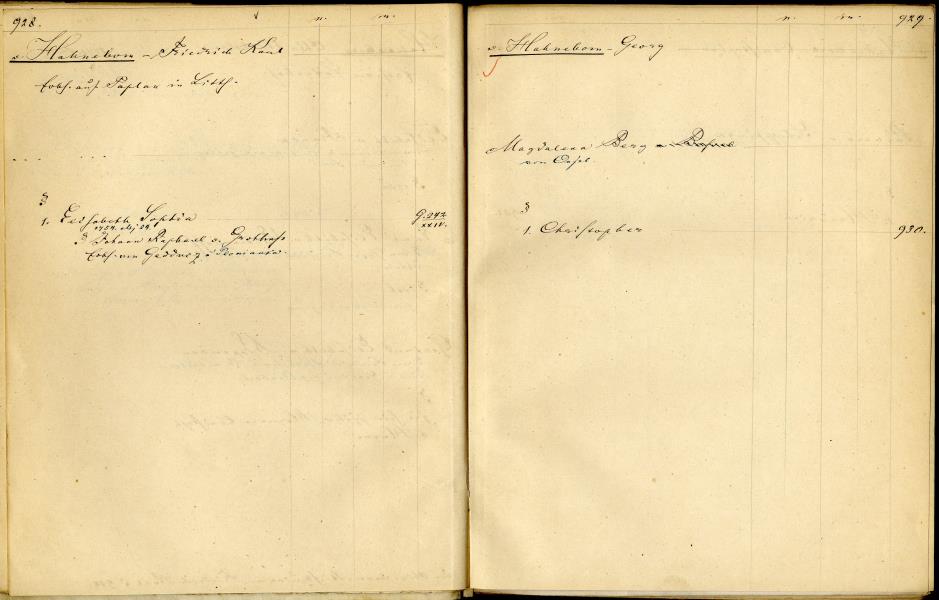 928.
n. m.
v. Hahnebom – Friedrich Karl
Erbh. auf Paplau in Litth.
... ...
1. Elisabeth Sophia
1754. Maj 24.
Johann Raphael v. Grotthuss
Erbh. von
G. 242
XXIV.
n. m.
929.
v. Hahnebom – Georg
Magdalena Berg
von Casel.
1. Christopher
930.